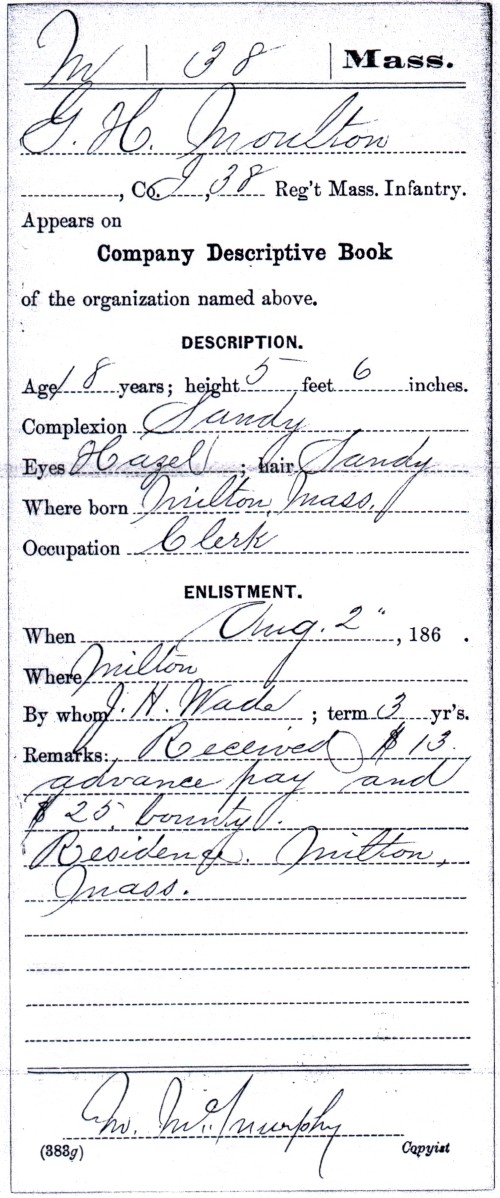 M | 38 | Mass.
G. H. Moulton
, Co. I, 38 Reg't Mass. Infantry.
Appears on
Company Descriptive Book
of the organization named above.
DESCRIPTION.
Age 18 years; height 5 feet 6 inches.
Complexion Sandy
Eyes Hazel ; hair Sandy
Where born Milton, Mass.
Occupation Clerk
ENLISTMENT.
When Aug. 2" , 186 .
Where Milton
By whom J. H. Wade ; term 3 yr's.
Remarks: Received $13.
advance pay and
$25. bounty.
Residence. Milton,
Mass.
(383g) Copyist